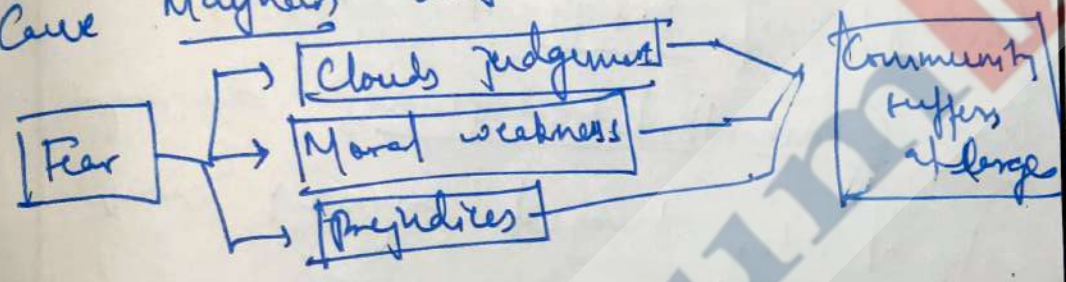 Cause
Clouds judgement
Fear
Moral weakness
Prejudices
Community
suffers
at large